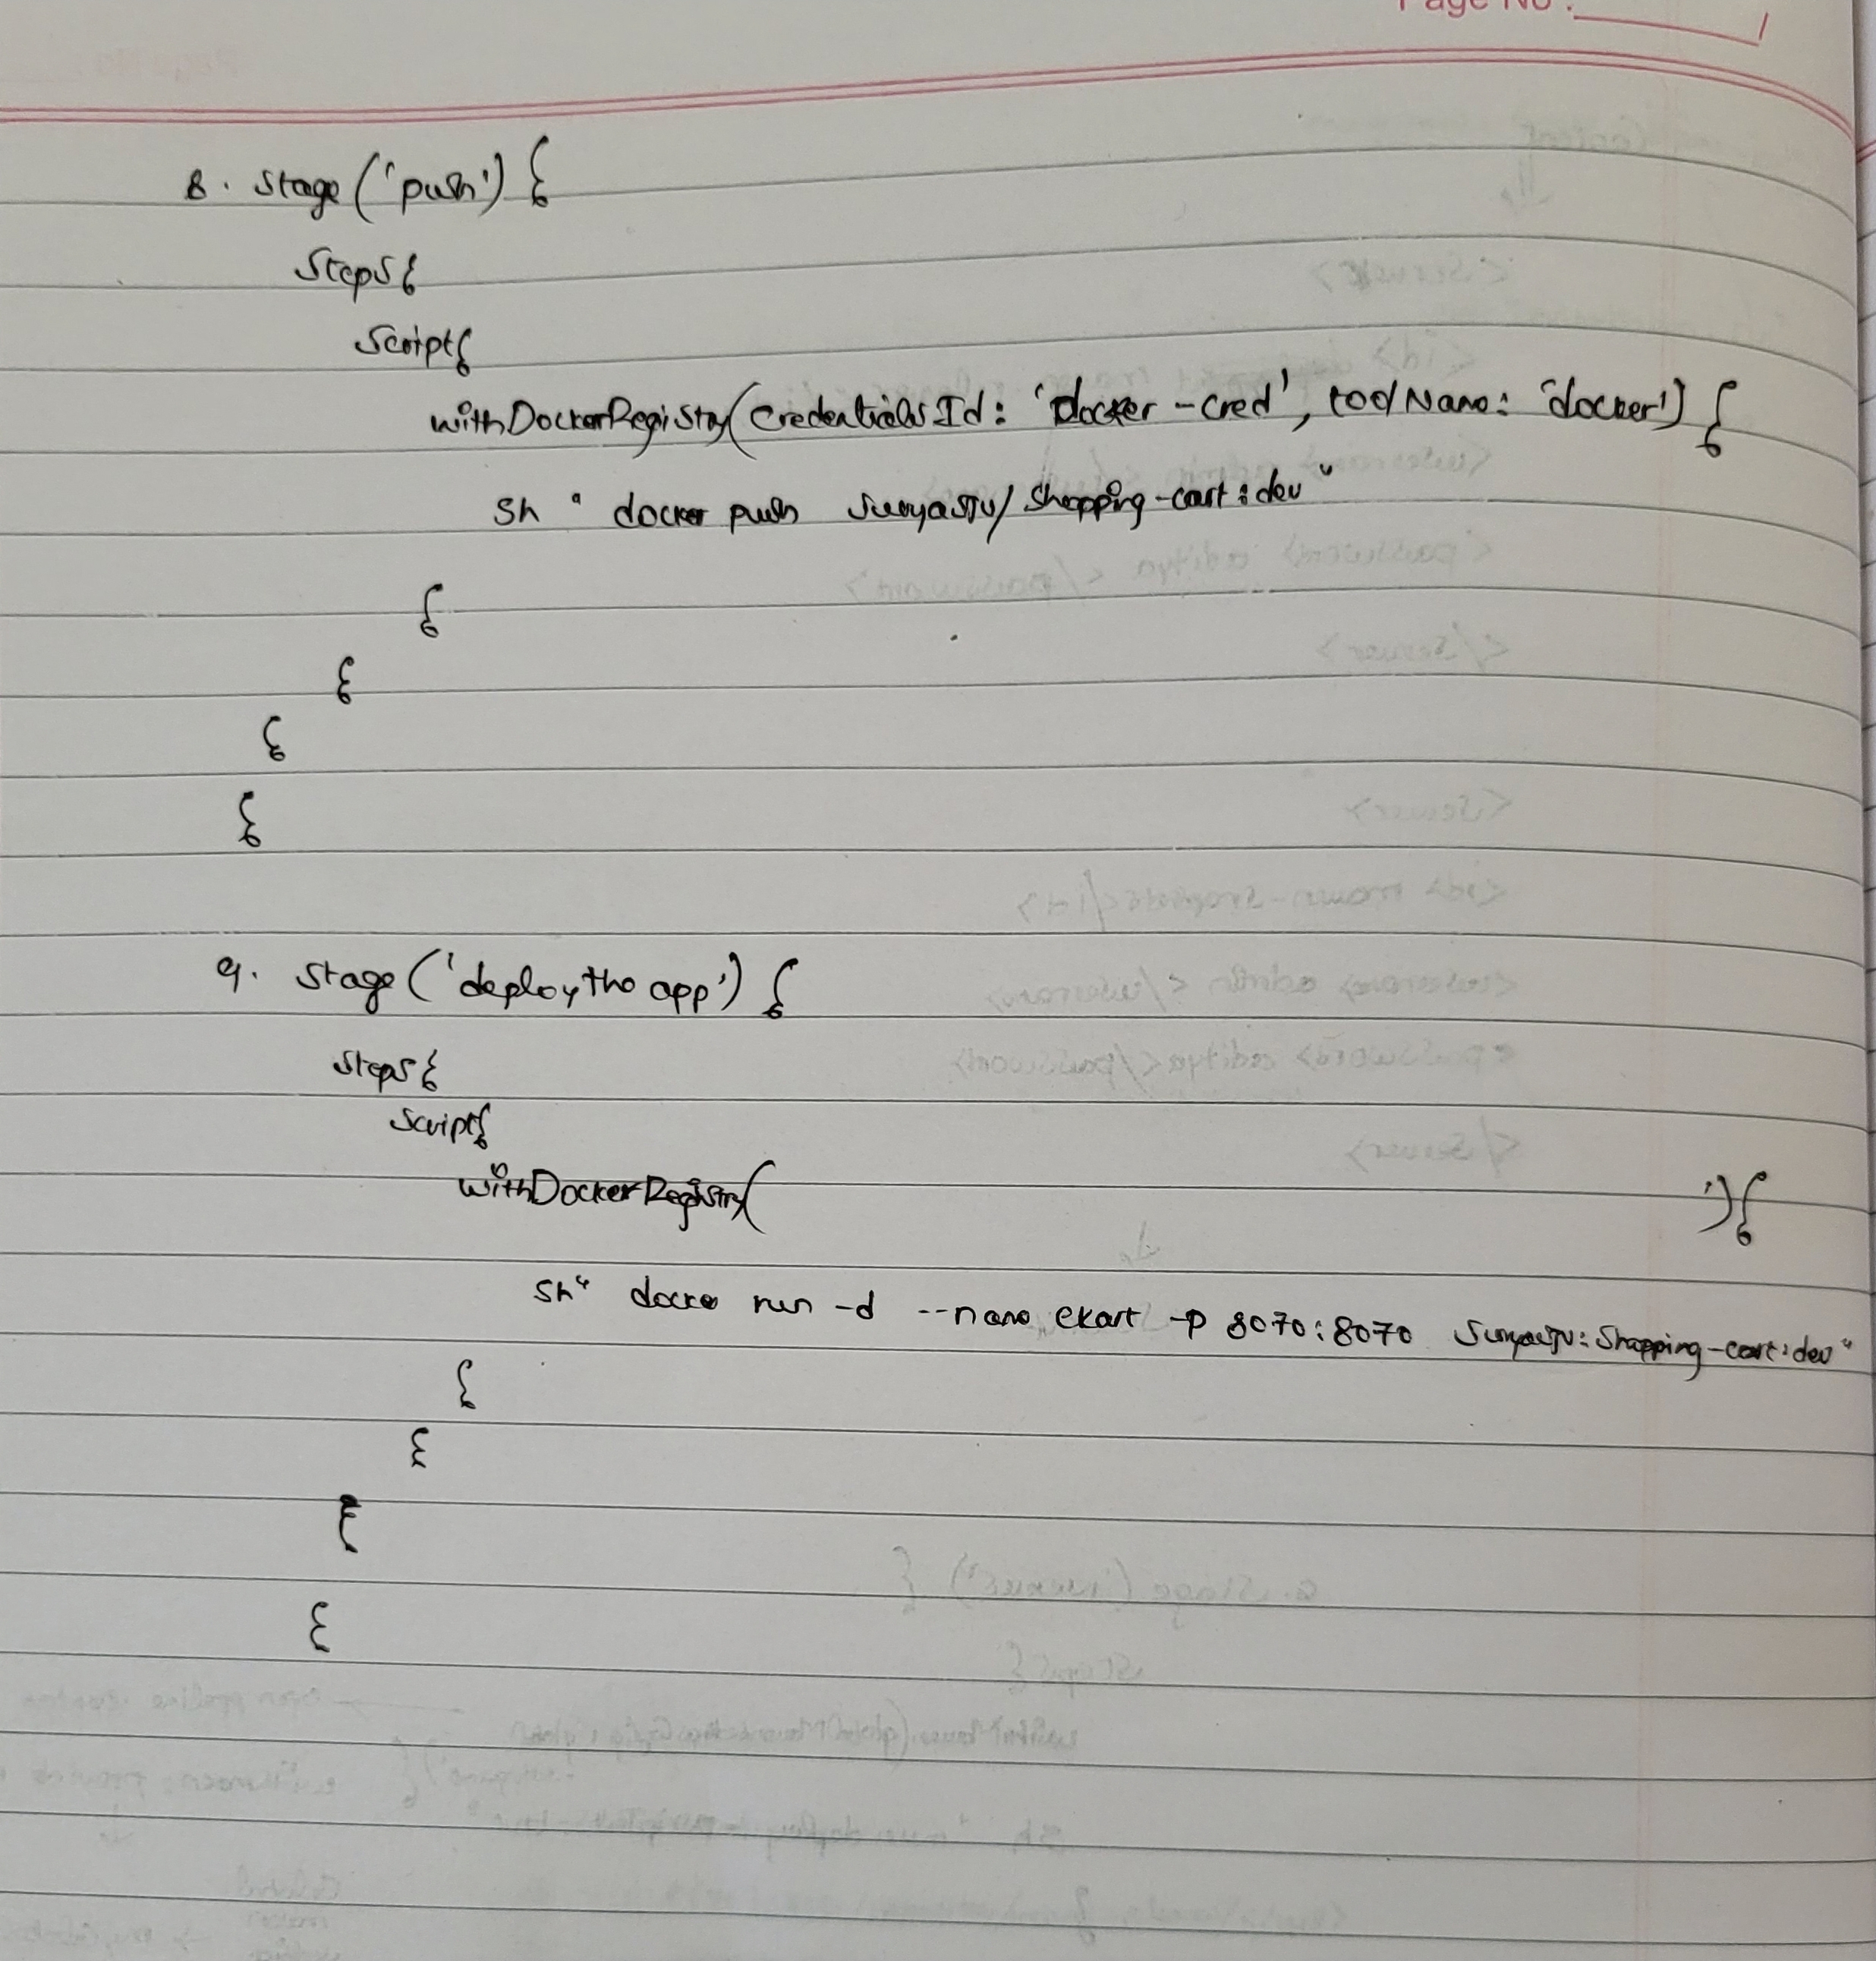 Page No :
8. Stage('push') {
Steps{
Script{
withDockerRegistry(CredentialsId: 'docker-cred', toolName: 'docker') {
sh " docker push /shopping-cart:dev"
{
{
{
{
9. Stage('deploy the app') {
Steps{
Script{
withDockerRegistry( '){
sh " docker run -d --name ekart -p 8070:8070 :shopping-cart:dev"
{
{
{
{